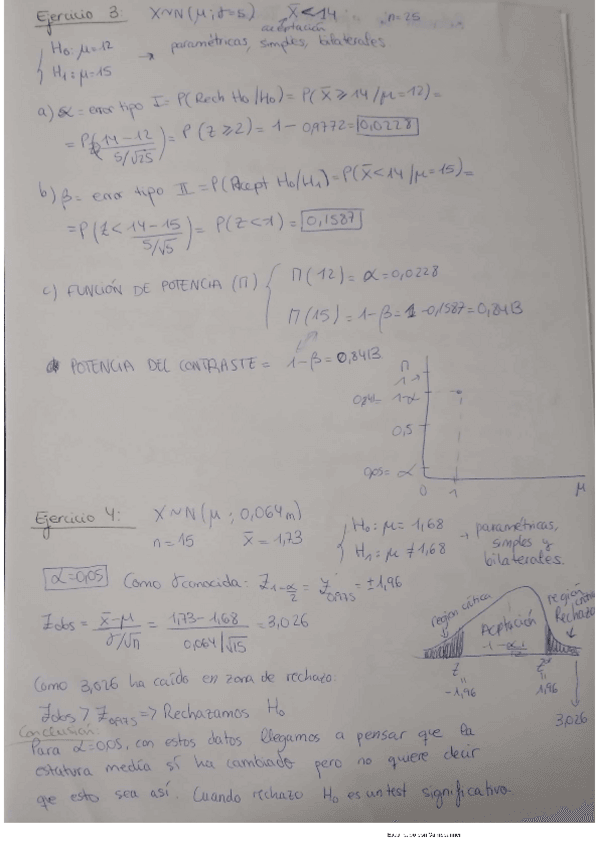 Ejercicio 3: X~N(μ; σ=5) X̄<14 n=25
aceptación
H₀: μ=12
H₁: μ=15 → paramétricas, simples, bilaterales
a) α = error tipo I = P(Rech H₀/H₀) = P(X̄ ≥ 14/μ=12) =
= P(14-12 / 5/√25) = P(Z ≥ 2) = 1 - 0,9772 = 0,0228
b) β = error tipo II = P(Acept H₀/H₁) = P(X̄<14/μ=15) =
= P(Z < 14-15 / 5/√5) = P(Z<1) = 0,1587
c) FUNCIÓN DE POTENCIA (Π) Π(12) = α = 0,0228
Π(15) = 1-β = 1-0,1587 = 0,8413
POTENCIA DEL CONTRASTE = 1-β = 0,8413
Π
1
0,841 = 1-α
0,5
0,05 = α
0 1 μ
Ejercicio 4: X~N(μ; 0,064m)
n=15 X̄=1,73
H₀: μ=1,68
H₁: μ≠1,68 → paramétricas, simples y bilaterales.
α=0,05 Como σ conocida: Z1-α/2 = Z0,975 = ±1,96
Zobs = X̄-μ / σ/√n = 1,73-1,68 / 0,064/√15 = 3,026
región crítica
Aceptación
1-α
región crítica
Rechazo
Z
-1,96
1,96
3,026
Como 3,026 ha caído en zona de rechazo:
Zobs > Z0,975 => Rechazamos H₀
Conclusión:
Para α=0,05, con estos datos llegamos a pensar que la
estatura media sí ha cambiado pero no quiere decir
que esto sea así. Cuando rechazo H₀ es un test significativo.